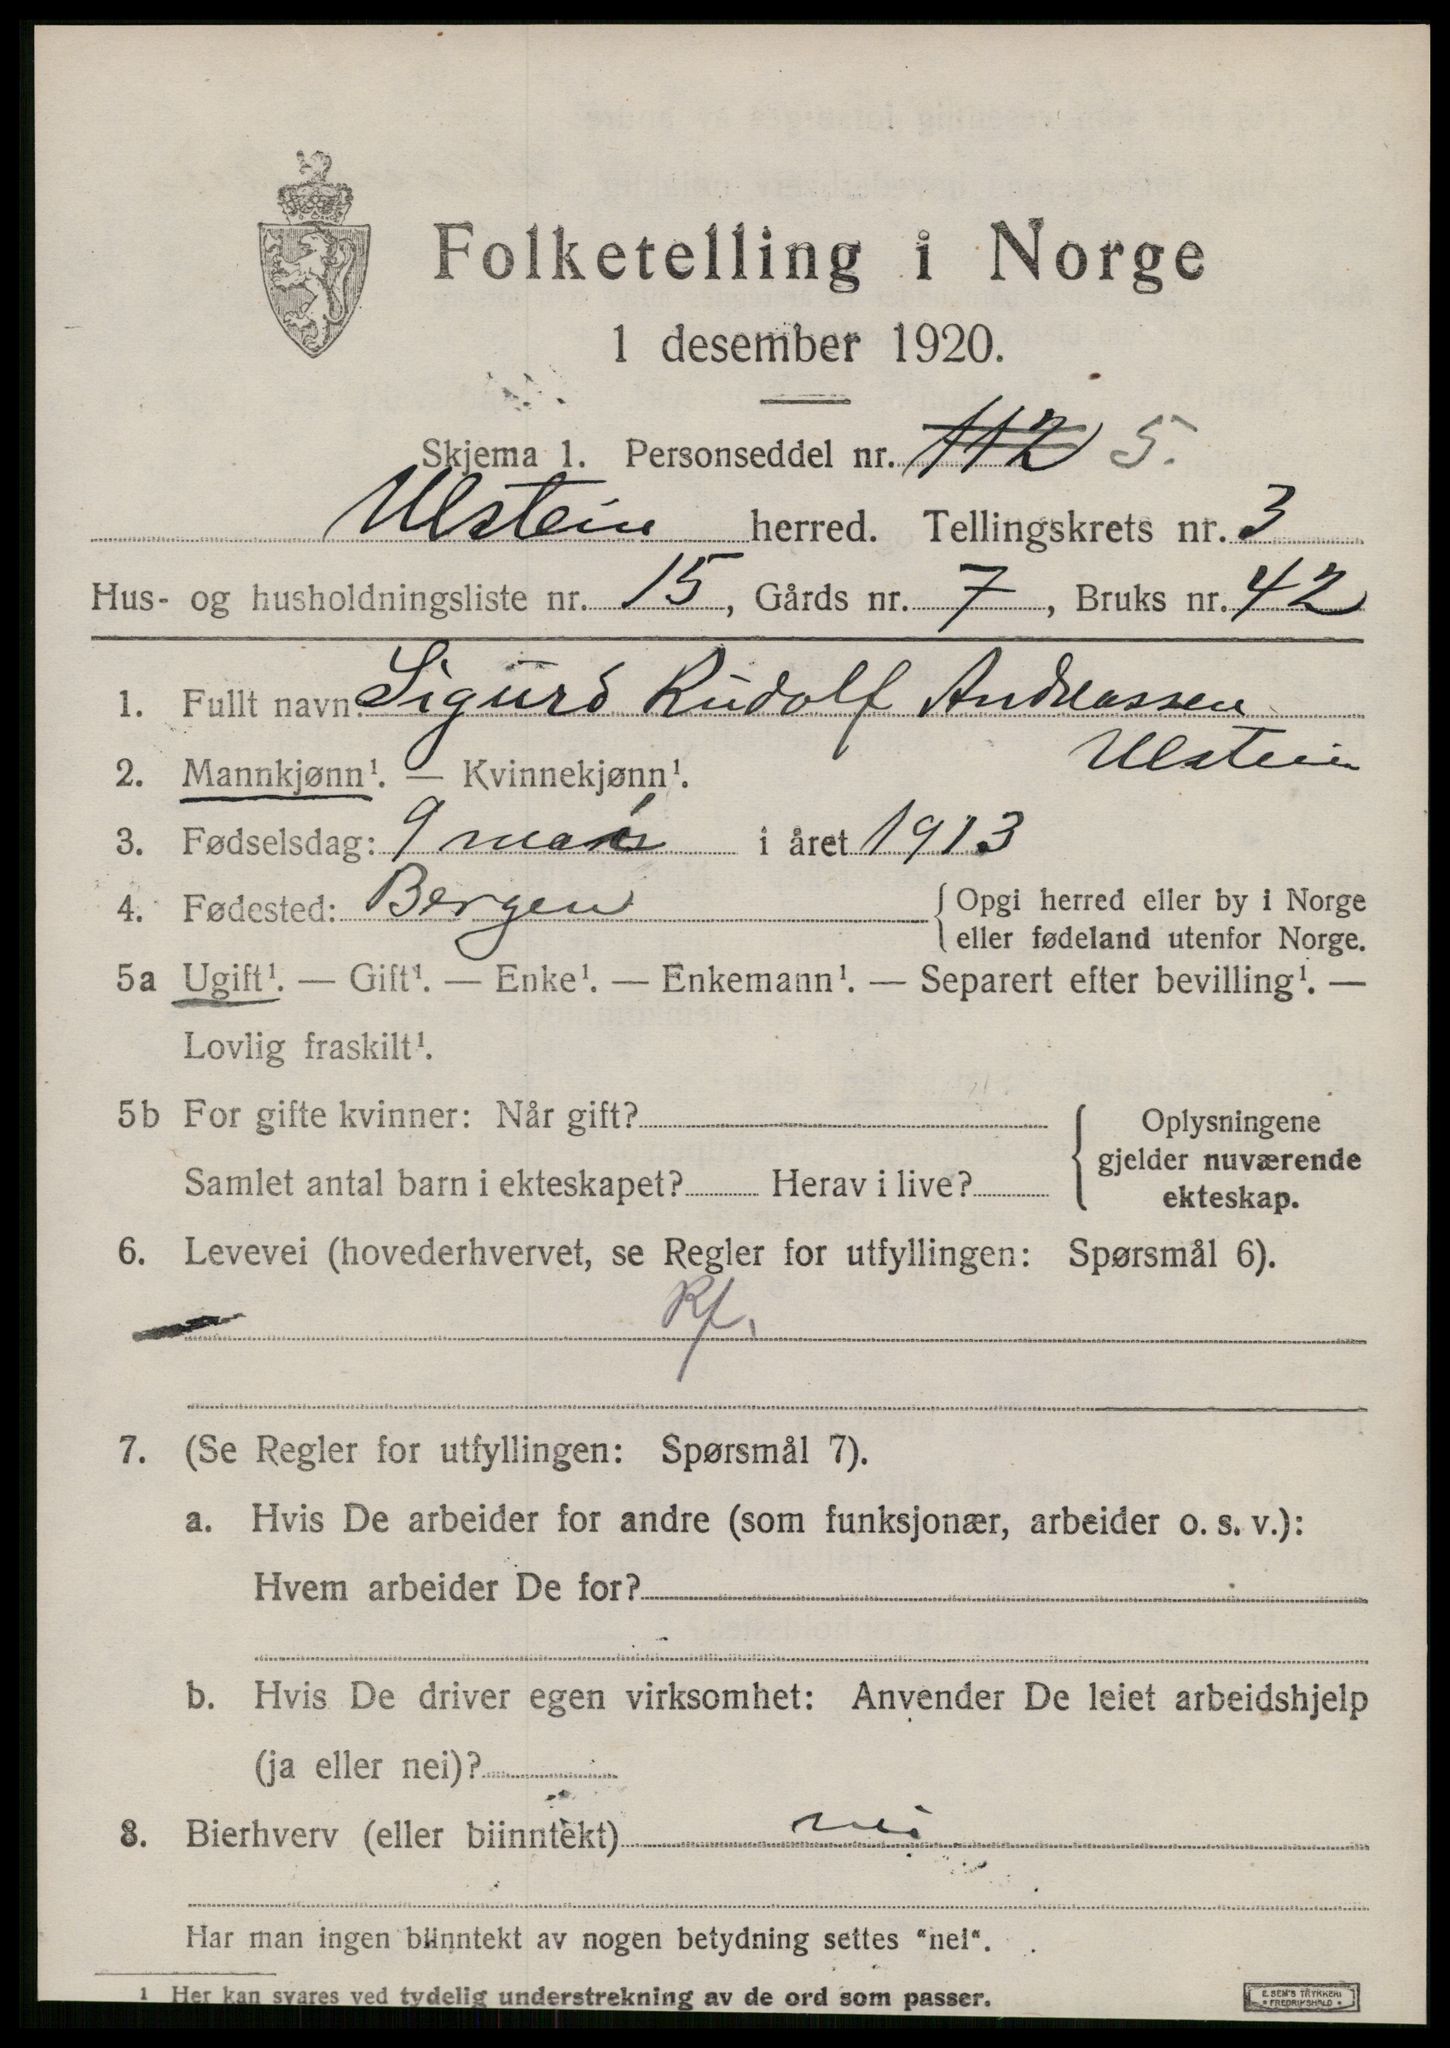 Folketelling i Norge
1 desember 1920.
Skjema 1. Personseddel nr. 112 5.
Ulstein herred. Tellingskrets nr. 3
Hus- og husholdningsliste nr. 15, Gårds nr. 7, Bruks nr. 42
1. Fullt navn: Sigurd Rudolf Andreassen
Ulstein
2. Mannkjønn¹. — Kvinnekjønn¹.
3. Fødselsdag: 9 mars i året 1913
4. Fødested: Bergen { Opgi herred eller by i Norge
eller fødeland utenfor Norge.
5a Ugift¹. — Gift¹. — Enke¹. — Enkemann¹. — Separert efter bevilling¹. —
Lovlig fraskilt¹.
5b For gifte kvinner: Når gift?
Samlet antal barn i ekteskapet? Herav i live?
{ Oplysningene
gjelder nuværende
ekteskap.
6. Levevei (hovederhvervet, se Regler for utfyllingen: Spørsmål 6).
7. (Se Regler for utfyllingen: Spørsmål 7).
a. Hvis De arbeider for andre (som funksjonær, arbeider o. s. v.):
Hvem arbeider De for?
b. Hvis De driver egen virksomhet: Anvender De leiet arbeidshjelp
(ja eller nei)?
8. Bierhverv (eller biinntekt) nei
Har man ingen biinntekt av nogen betydning settes "nei".
1 Her kan svares ved tydelig understrekning av de ord som passer.
E. SEM'S TRYKKERI
* FREDRIKSHALD *